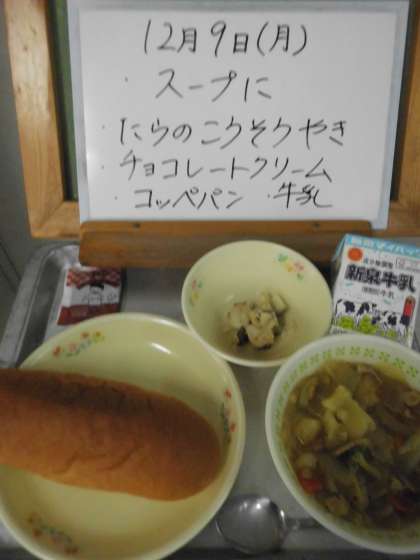 12月9日(月)
・スープに
・たらのこうそうやき
・チョコレートクリーム
・コッペパン ・牛乳
新泉牛乳